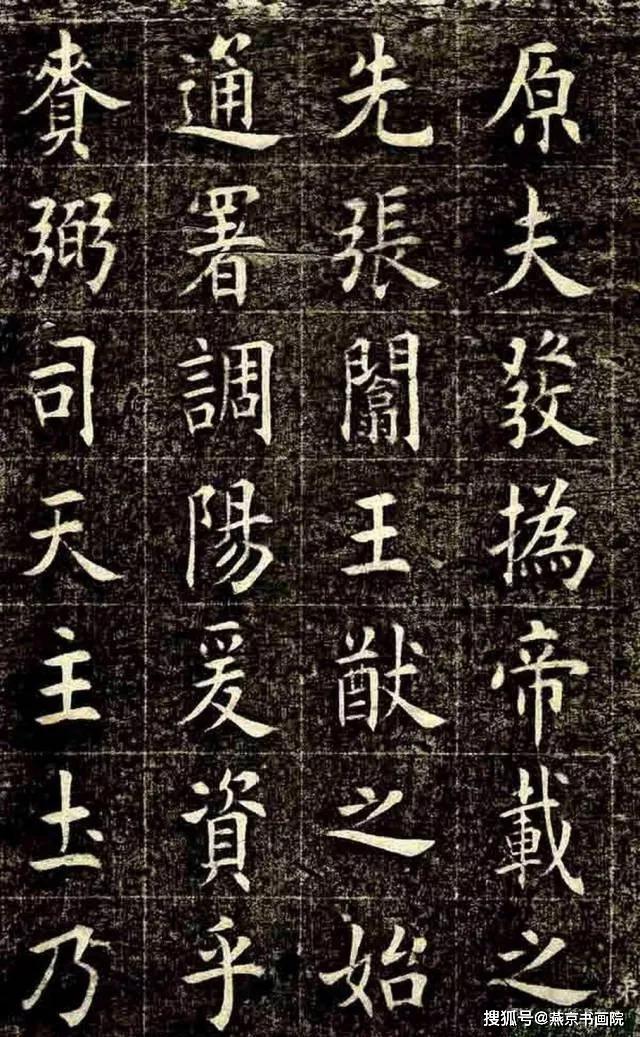 原夫發撝帝載之
先張闡王猷之始
通署調陽爰資乎
賚弼司天主土乃
搜狐号@燕京书画院